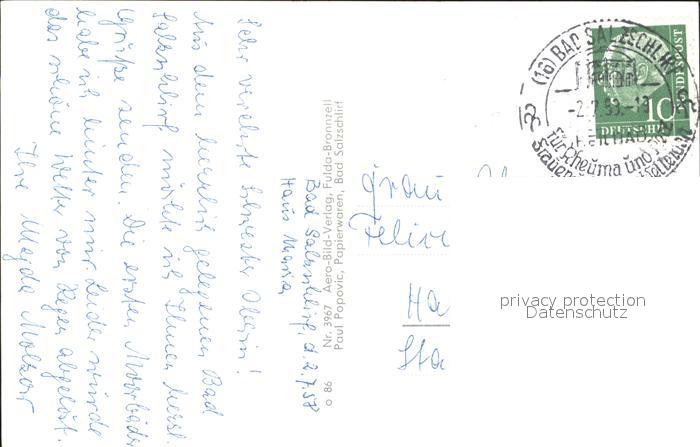 Sehr verehrte Schwester Oberin!
Aus dem herrlich gelegenen Bad
Salzschlirf möchte ich Ihnen herzl.
Grüße senden. Die ersten Moorbäder
habe ich hinter mir. Leider wurde
das schöne Wetter von Regen abgelöst.
Ihre Magda
Bad Salzschlirf, d. 2.7.58
Haus Maria
o 86 Nr. 3967 Aero-Bild-Verlag, Fulda-Bronnzell
Paul Popovic, Papierwaren, Bad Salzschlirf
Frau
Ha
Sta
(16) BAD SALZSCHLIRF
HEILBAD
für Rheuma und
Frauen
10
DEUTSCHE
BUNDESPOST
privacy protection
Datenschutz